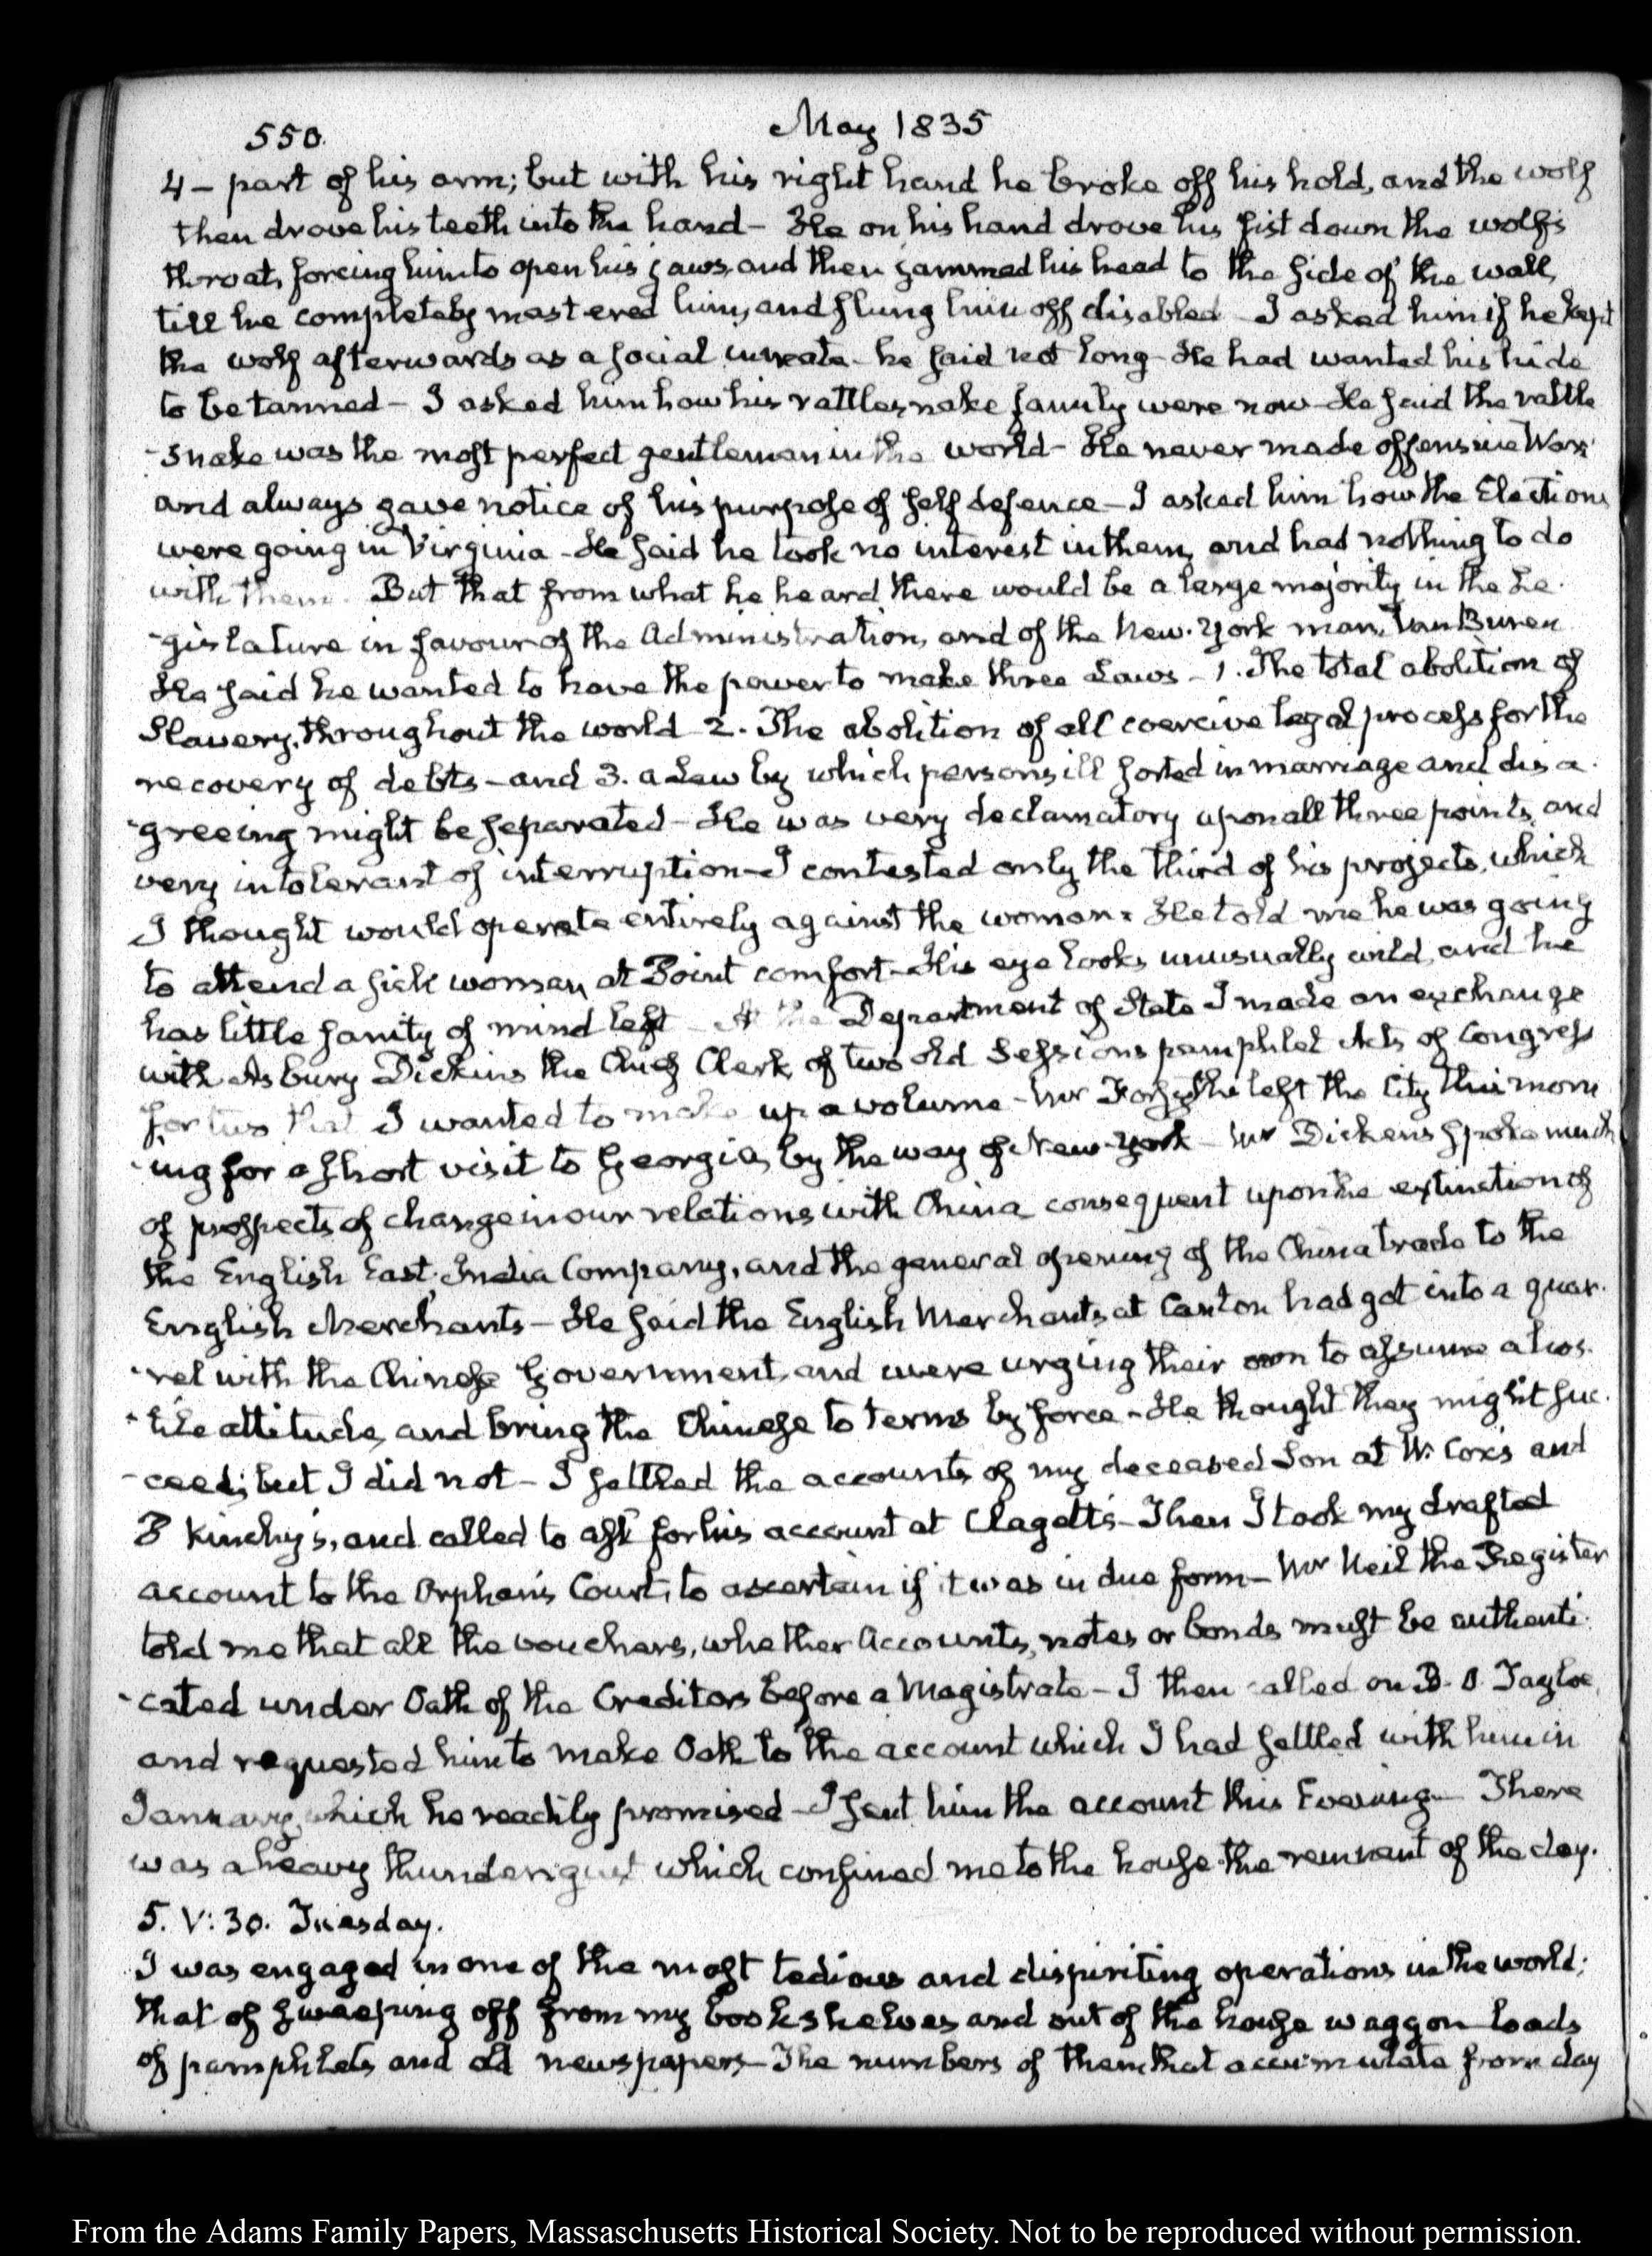 550.
May 1835
4 – part of his arm; but with his right hand he broke off his hold, and the wolf
then drove his teeth into the hand – He on his hand drove his fist down the wolf's
throat, forcing him to open his jaws, and then jammed his head to the side of the wall,
till he completely mastered him, and flung him off disabled – I asked him if he kept
the wolf afterwards as a social inmate – he said not long – He had wanted his hide
to be tanned – I asked him how his rattlesnake family were now – He said the rattle
-snake was the most perfect gentleman in the world – He never made offensive War;
and always gave notice of his purpose of self defence – I asked him how the Elections
were going in Virginia – He said he took no interest in them, and had nothing to do
with them. But that from what he heard there would be a large majority in the Le-
-gislature in favour of the Administration, and of the New-York man, Van Buren
He said he wanted to have the power to make three Laws – 1. The total abolition of
Slavery, throughout the world 2. The abolition of all coercive legal process for the
recovery of debts – and 3. a Law by which persons ill sorted in marriage and disa-
-greeing might be separated – He was very declamatory upon all three points, and
very intolerant of interruption – I contested only the third of his projects, which
I thought would operate entirely against the woman. He told me he was going
to attend a sick woman, at Point comfort – His eye looks unusually wild, and he
has little sanity of mind left – At the Department of State I made an exchange
with Asbury Dickins the Chief Clerk, of two old Sessions pamphlet Acts of Congress
for two that I wanted to make up a volume – Mr Forsythe left the City this morn
-ing for a short visit to Georgia, by the way of New-York – Mr Dickens spoke much
of prospects of change in our relations with China consequent upon the extinction of
the English East-India Company, and the general opening of the China trade to the
English Merchants – He said the English Merchants at Canton had got into a quar-
-rel with the Chinese Government, and were urging their own to assume a hos-
-tile attitude, and bring the Chinese to terms by force – He thought they might suc-
-ceed; but I did not – I settled the accounts of my deceased Son at W. Cox's and
B Kinchy's, and called to ask for his account at Clagett's – Then I took my drafted
account to the Orphan's Court, to ascertain if it was in due form – Mr Neil the Register
told me that all the vouchers, whether Accounts, notes or bonds must be authenti-
-cated under Oath of the Creditors before a Magistrate – I then called on B. O. Tayloe,
and requested him to make Oath to the account which I had settled with him in
January, which he readily promised – I sent him the account this Evening – There
was a heavy thundergust which confined me to the house the remnant of the day.
5. V: 30. Tuesday.
I was engaged in one of the most tedious and dispiriting operations in the world;
that of sweeping off from my bookshelves and out of the house waggon loads
of pamphlets and old newspapers – The numbers of them that accumulate from day
From the Adams Family Papers, Massaschusetts Historical Society. Not to be reproduced without permission.